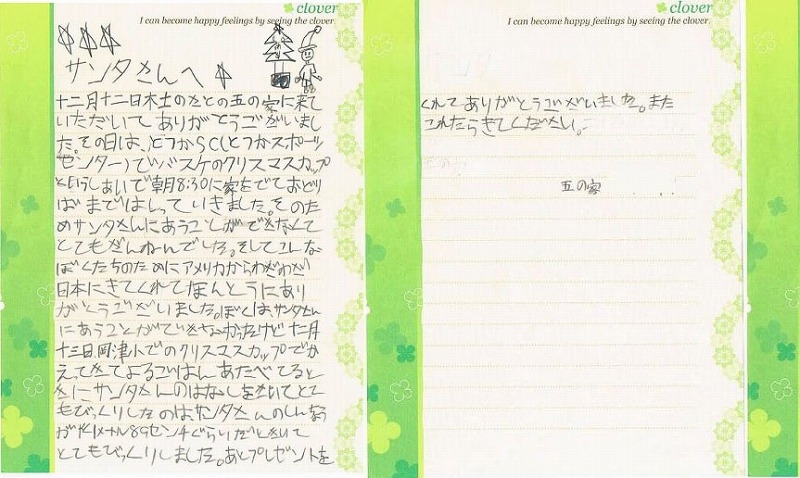 clover
I can become happy feelings by seeing the clover.
サンタさんへ
十二月十二日木土のさとの五の家に来て
いただいてありがとうございまし
た。その日は、とつかSC(とつかスポーツ
センター)でバスケのクリスマスカップ
というしあいで朝8:30に家をでておどり
ばまではしっていきました。そのた
めサンタさんにあうことができなくて
とてもざんねんでした。そしてこんな
ぼくたちのためにアメリカからわざわざ
日本にきてくれてほんとうにあり
がとうございました。ぼくはサンタさん
にあうことができなかったけど十二月
十三日、岡津小でのクリスマスカップでか
えってきてよるごはんをたべてると
きにサンタさんのはなしをきいてとて
もびっくりしたのはサンタさんのしんちょう
が1メートル89センチぐらいだときいて
とてもびっくりしました。あとプレゼントを
clover
I can become happy feelings by seeing the clover.
くれてありがとうございました。また
これたらきてください。
五の家